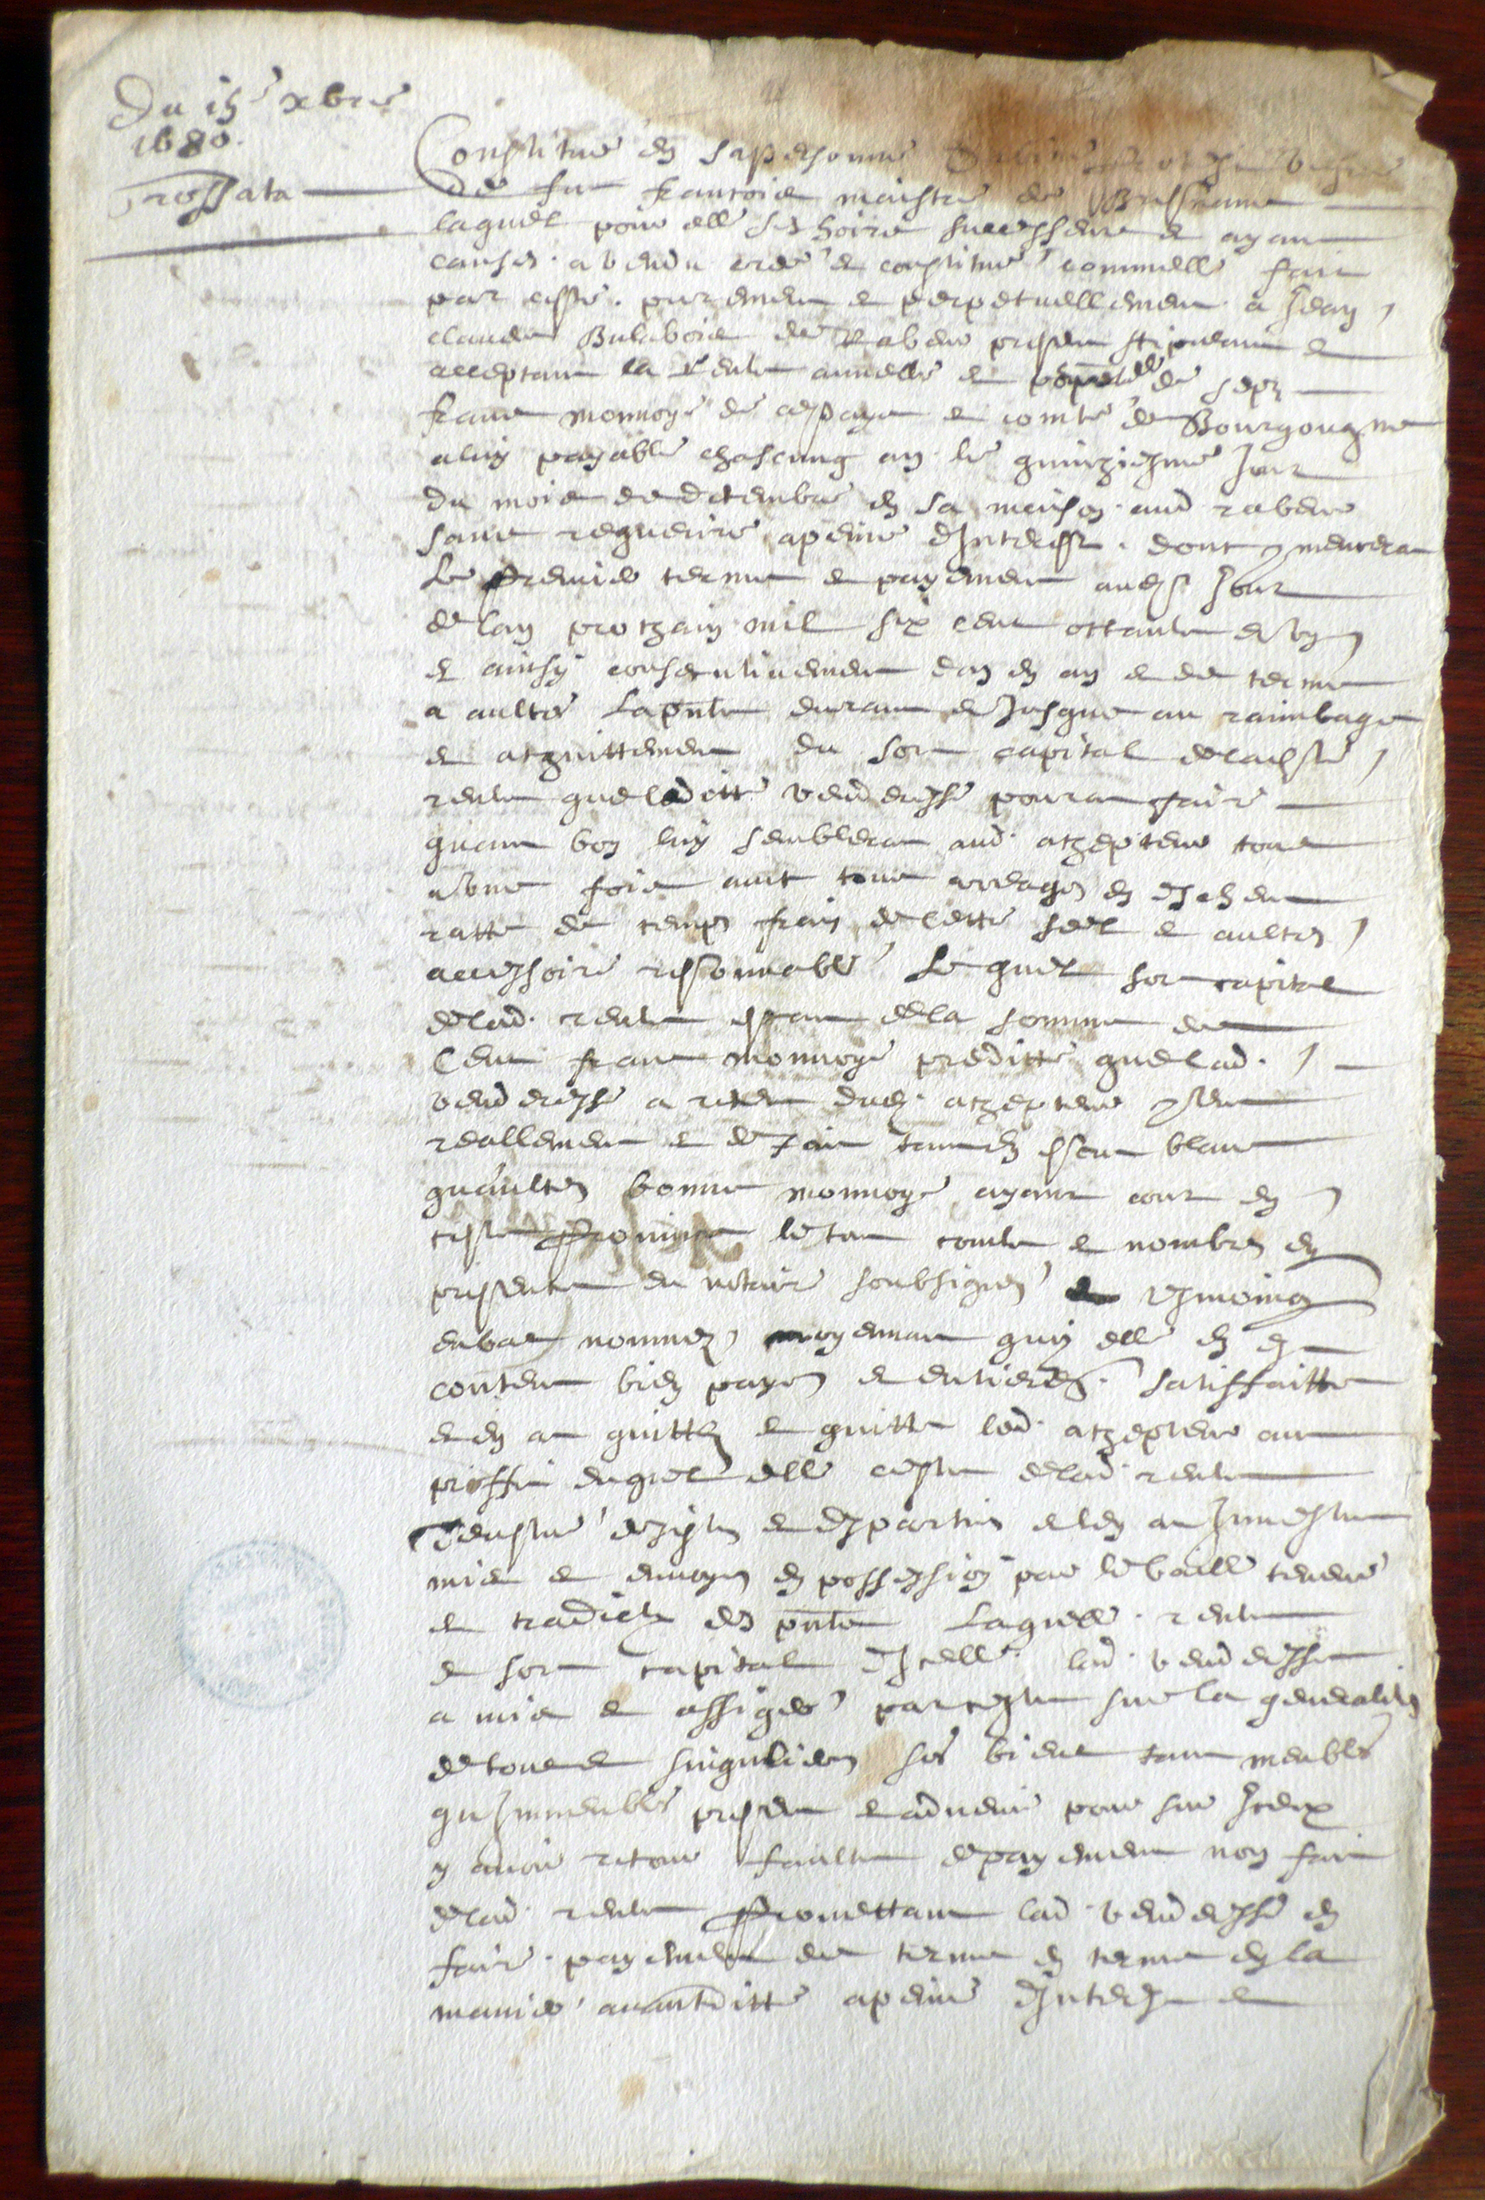 Du 15e xbre
1680.
Grossata
Constitue en sa personne
de fut francois maistre de
laquel pour elle ses hoirs successeurs et ayans
causes a vendu cree et constitué comm'elle fait
par ceste purement et perpetuellement a Jean
claude de Rabeur present stipulant et
acceptant la rente annuelle et perpetuelle de sept
frans monnoye de ces pays et comte de Bourgougne
a luy payable chascung an le quinziesme Jour
du mois de decembre en sa maison aud rabeur
sans requerire a peine d'Interest dont
Le premier terme et payement audit Jour
de lan prochain mil six cent octante et ung
et ainsy consecutivement d'an en an et de terme
a aultre La pnte durant et Jusques au raimbage
et acquittement du sort capital de ladste
rente que laditte venderesse pourat faire
quant bon luy semblerat aud achepteur tout
a une fois avec tous arrerages en escheus
ratte de temps frais de lettre seel et aultres
accessoire resonnable Lequel sort capital
de lad. rente estant de la somme de
Cent frans monnoye preditte que lad.
venderesse a receu dud. achepteur
reallement et de fait tant en escus blans
qu'aultres bonne monnoye ayant cour en
ceste Province le tout compte et nombré en
presence du notaire soubsigné et tesmoings
enbas nommez moyennant quoy elle en est
contente bien payee et entierem. satisfaitte
et en at quitté et quitte led. achepteur au
proffit duquel elle c'este de lad. rente
devestue desiste et departie et len at Investu
mis et envoyé en possession par le baille teneur
et tradicte des pntes Laquelle rente
et sort capital d'Icelle lad. venderesse
a mis et assigné par ceste sur la generalité
de tous et singuliers ses biens tant meubles
qu'Immeubles present et advenir pour sur Iceux
y avoir retour faulte de payement non fait
de lad. rente Promettant lad. venderesse en
faire payement de terme en terme en la
maniere avantditte a peine d'Interest et